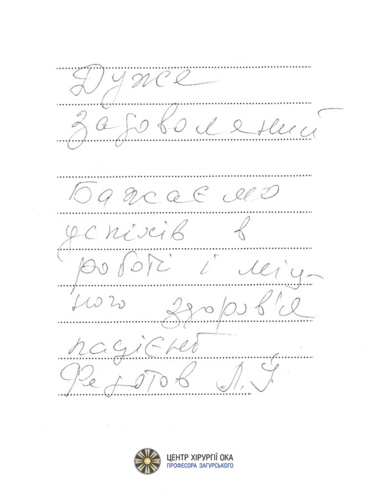 Дуже
задоволений
Бажаємо
успіхів в
роботі і міц-
ного здоров'я
пацієнт
Федотов Л.
ЦЕНТР ХІРУРГІЇ ОКА
ПРОФЕСОРА ЗАГУРСЬКОГО